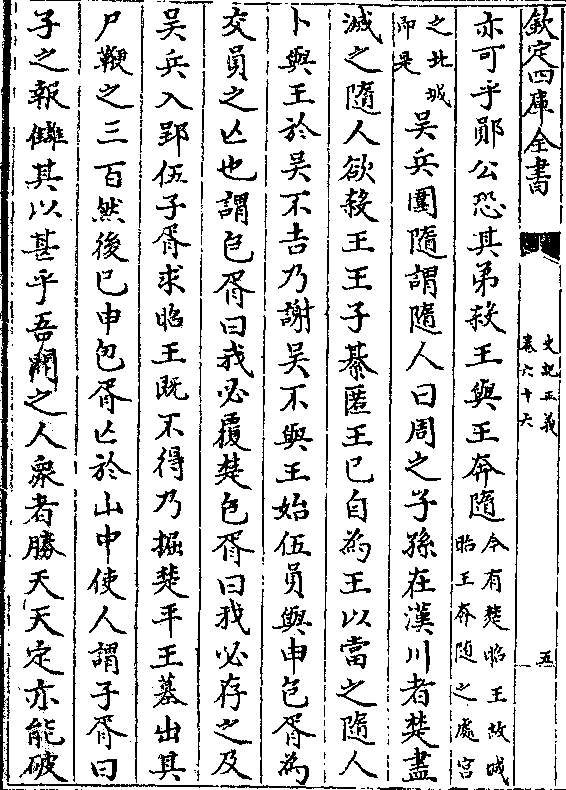 欽定四庫全書
史記正義
卷六十六
五
亦可乎鄖公恐其弟殺王與王奔隨今有楚昭王故城
昭王奔隨之處宮
之北城
即是
吳兵圍隨謂隨人曰周之子孫在漢川者楚盡
滅之隨人欲殺王王子綦匿王已自為王以當之隨人
卜與王於吳不吉乃謝吳不與王始伍員與申包胥為
交員之亡也謂包胥曰我必覆楚包胥曰我必存之及
吳兵入郢伍子胥求昭王既不得乃掘楚平王墓出其
尸鞭之三百然後已申包胥亡於山中使人謂子胥曰
子之報讎其以甚乎吾聞之人衆者勝天天定亦能破